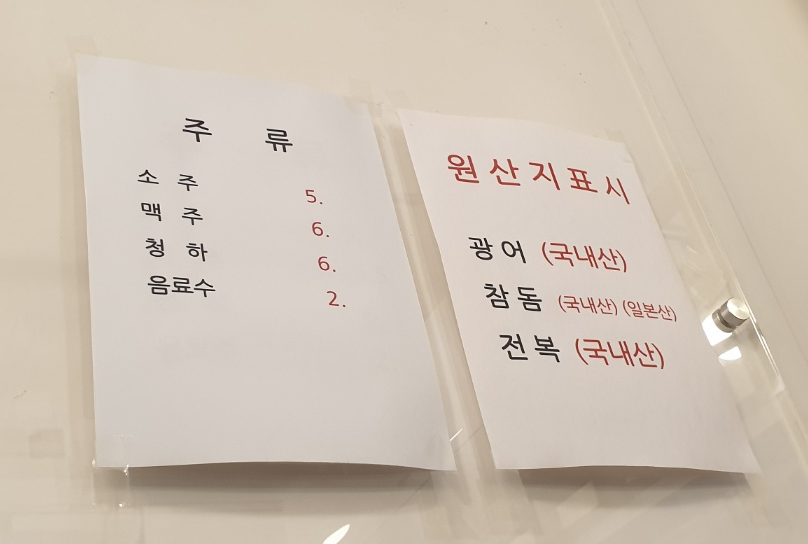 주 류
소 주 5.
맥 주 6.
청 하 6.
음료수 2.
원산지표시
광어 (국내산)
참돔 (국내산) (일본산)
전복 (국내산)